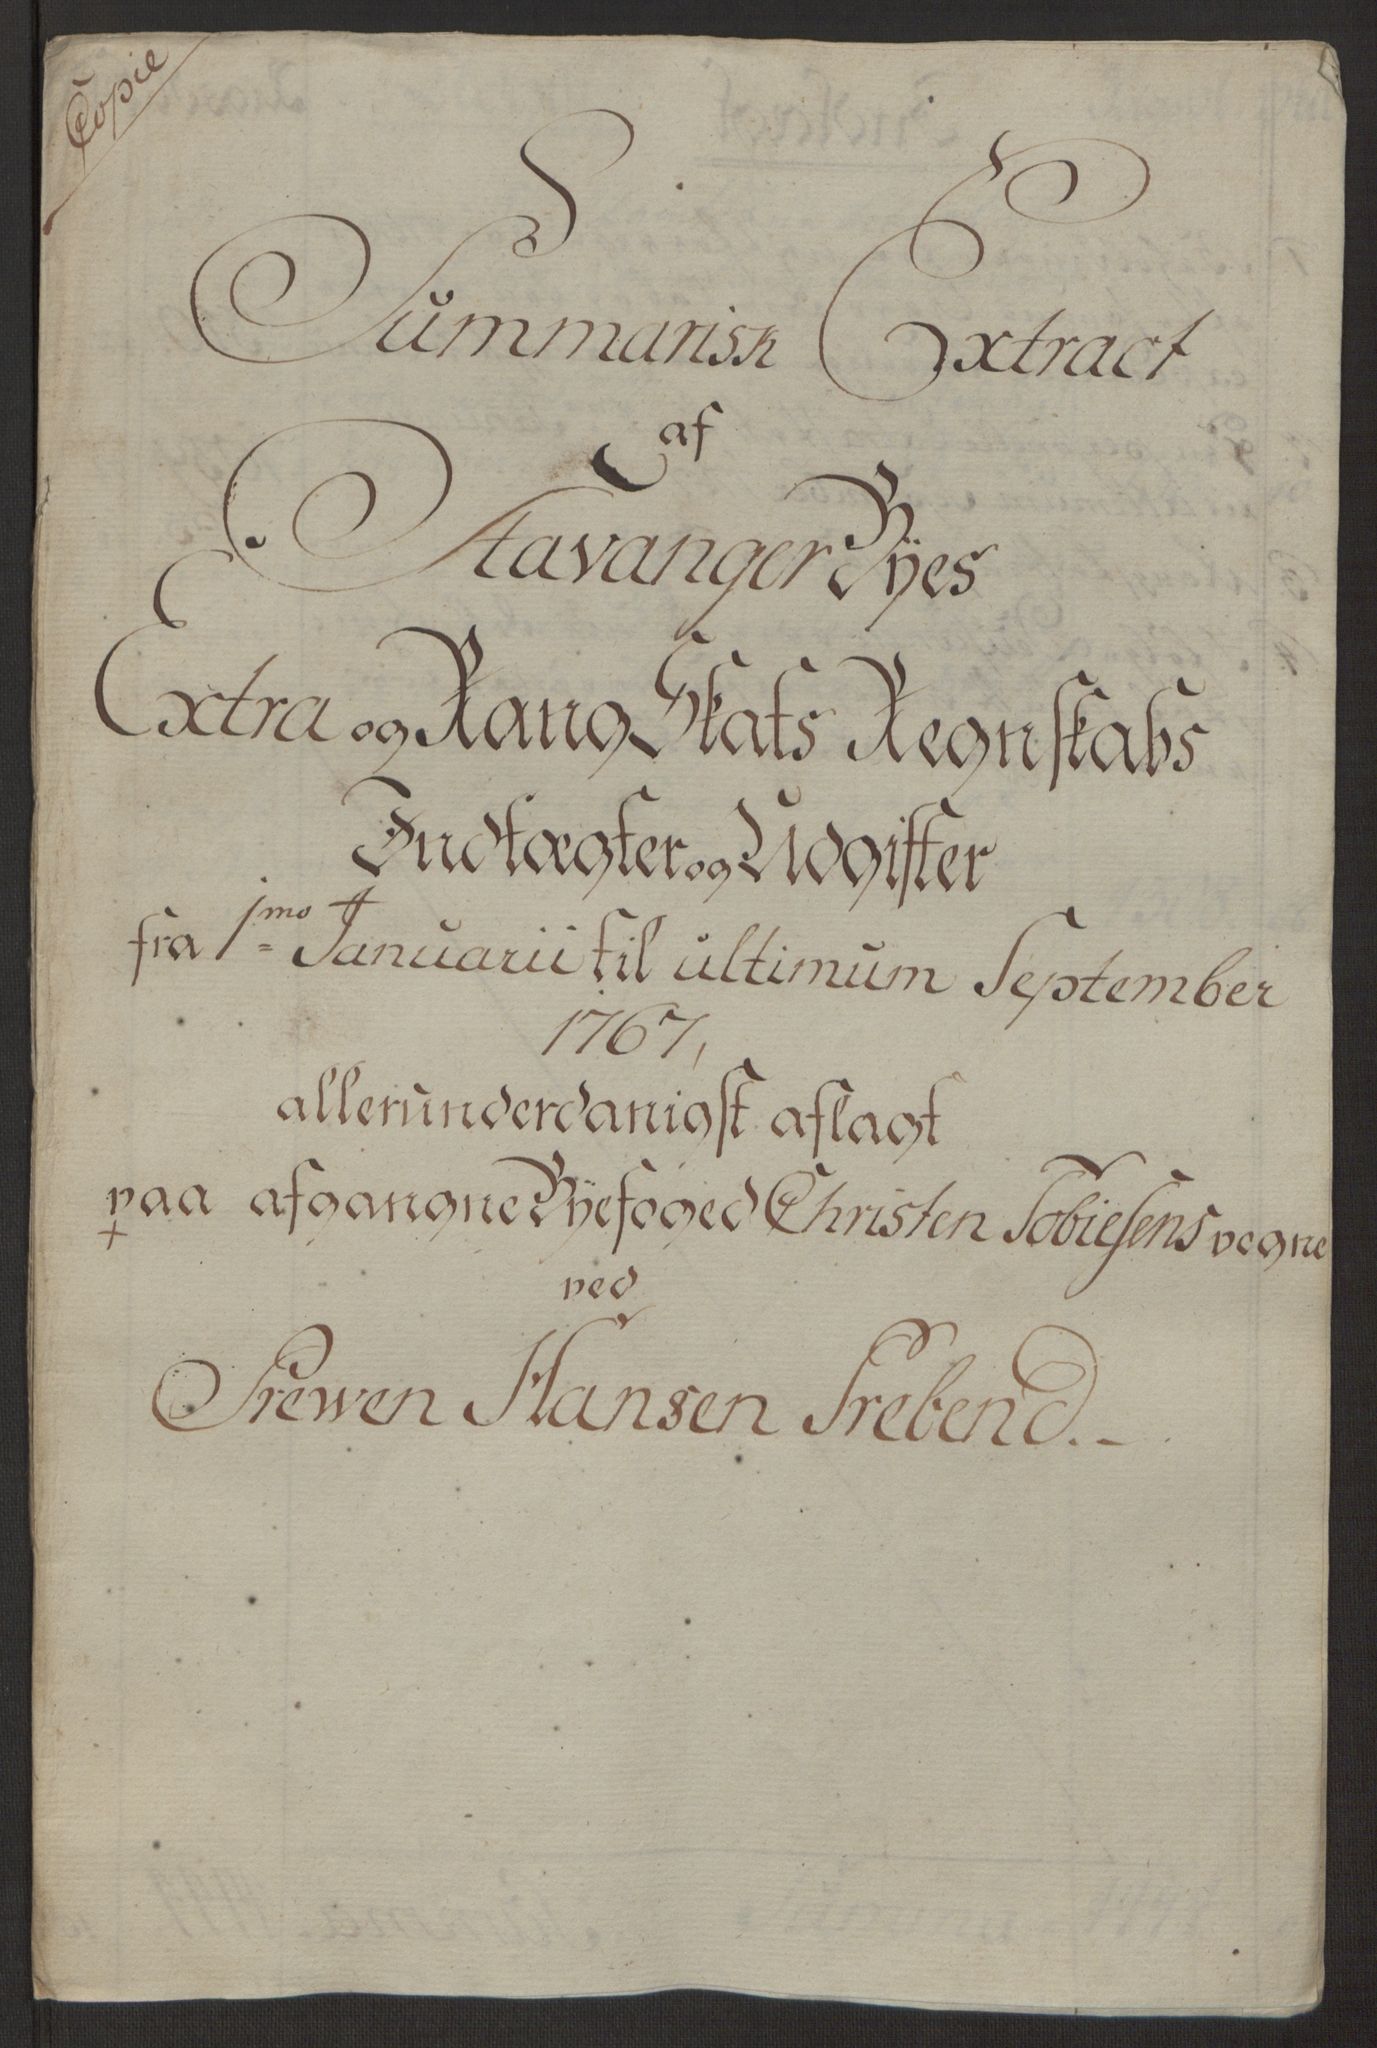 Copie
Summarisk Extract
af
Stavanger Byes
Extra og Rang Skats Regnskabs
Indtægter og Udgifter
fra 1mo Januarii til ultimum September
1767,
allerunderdanigst aflagt
paa afgangne Byefoged Christen Tobiesens vegne
ved
Hansen Trebend.